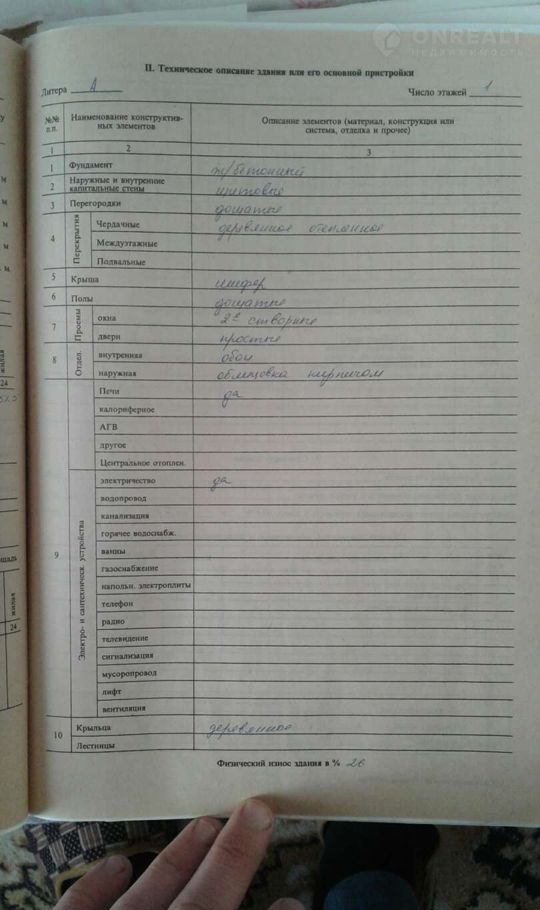 ONREALT
НЕДВИЖИМОСТЬ
II. Техническое описание здания или его основной пристройки
Литера А
Число этажей 1
№№ п.п.
Наименование конструктив-
ных элементов
Описание элементов (материал, конструкция или
система, отделка и прочее)
1 2 3
1 Фундамент ж/бетонный
2 Наружные и внутренние
капитальные стены щитовые
3 Перегородки дощатые
4 Перекрытия
Чердачные деревянное отепленное
Междуэтажные
Подвальные
5 Крыша шифер
6 Полы дощатые
7 Проемы
окна 2е створные
двери простые
8 Отдел.
внутренняя обои
наружная облицовка кирпичом
9
Печи да
калориферное
АГВ
другое
Центральное отоплен.
Электро- и сантехническ. устройства
электричество да
водопровод
канализация
горячее водоснабж.
ванны
газоснабжение
напольн. электроплиты
телефон
радио
телевидение
сигнализация
мусоропровод
лифт
вентиляция
10 Крыльца деревянное
Лестницы
Физический износ здания в % 26
жилая
24
жилая
24